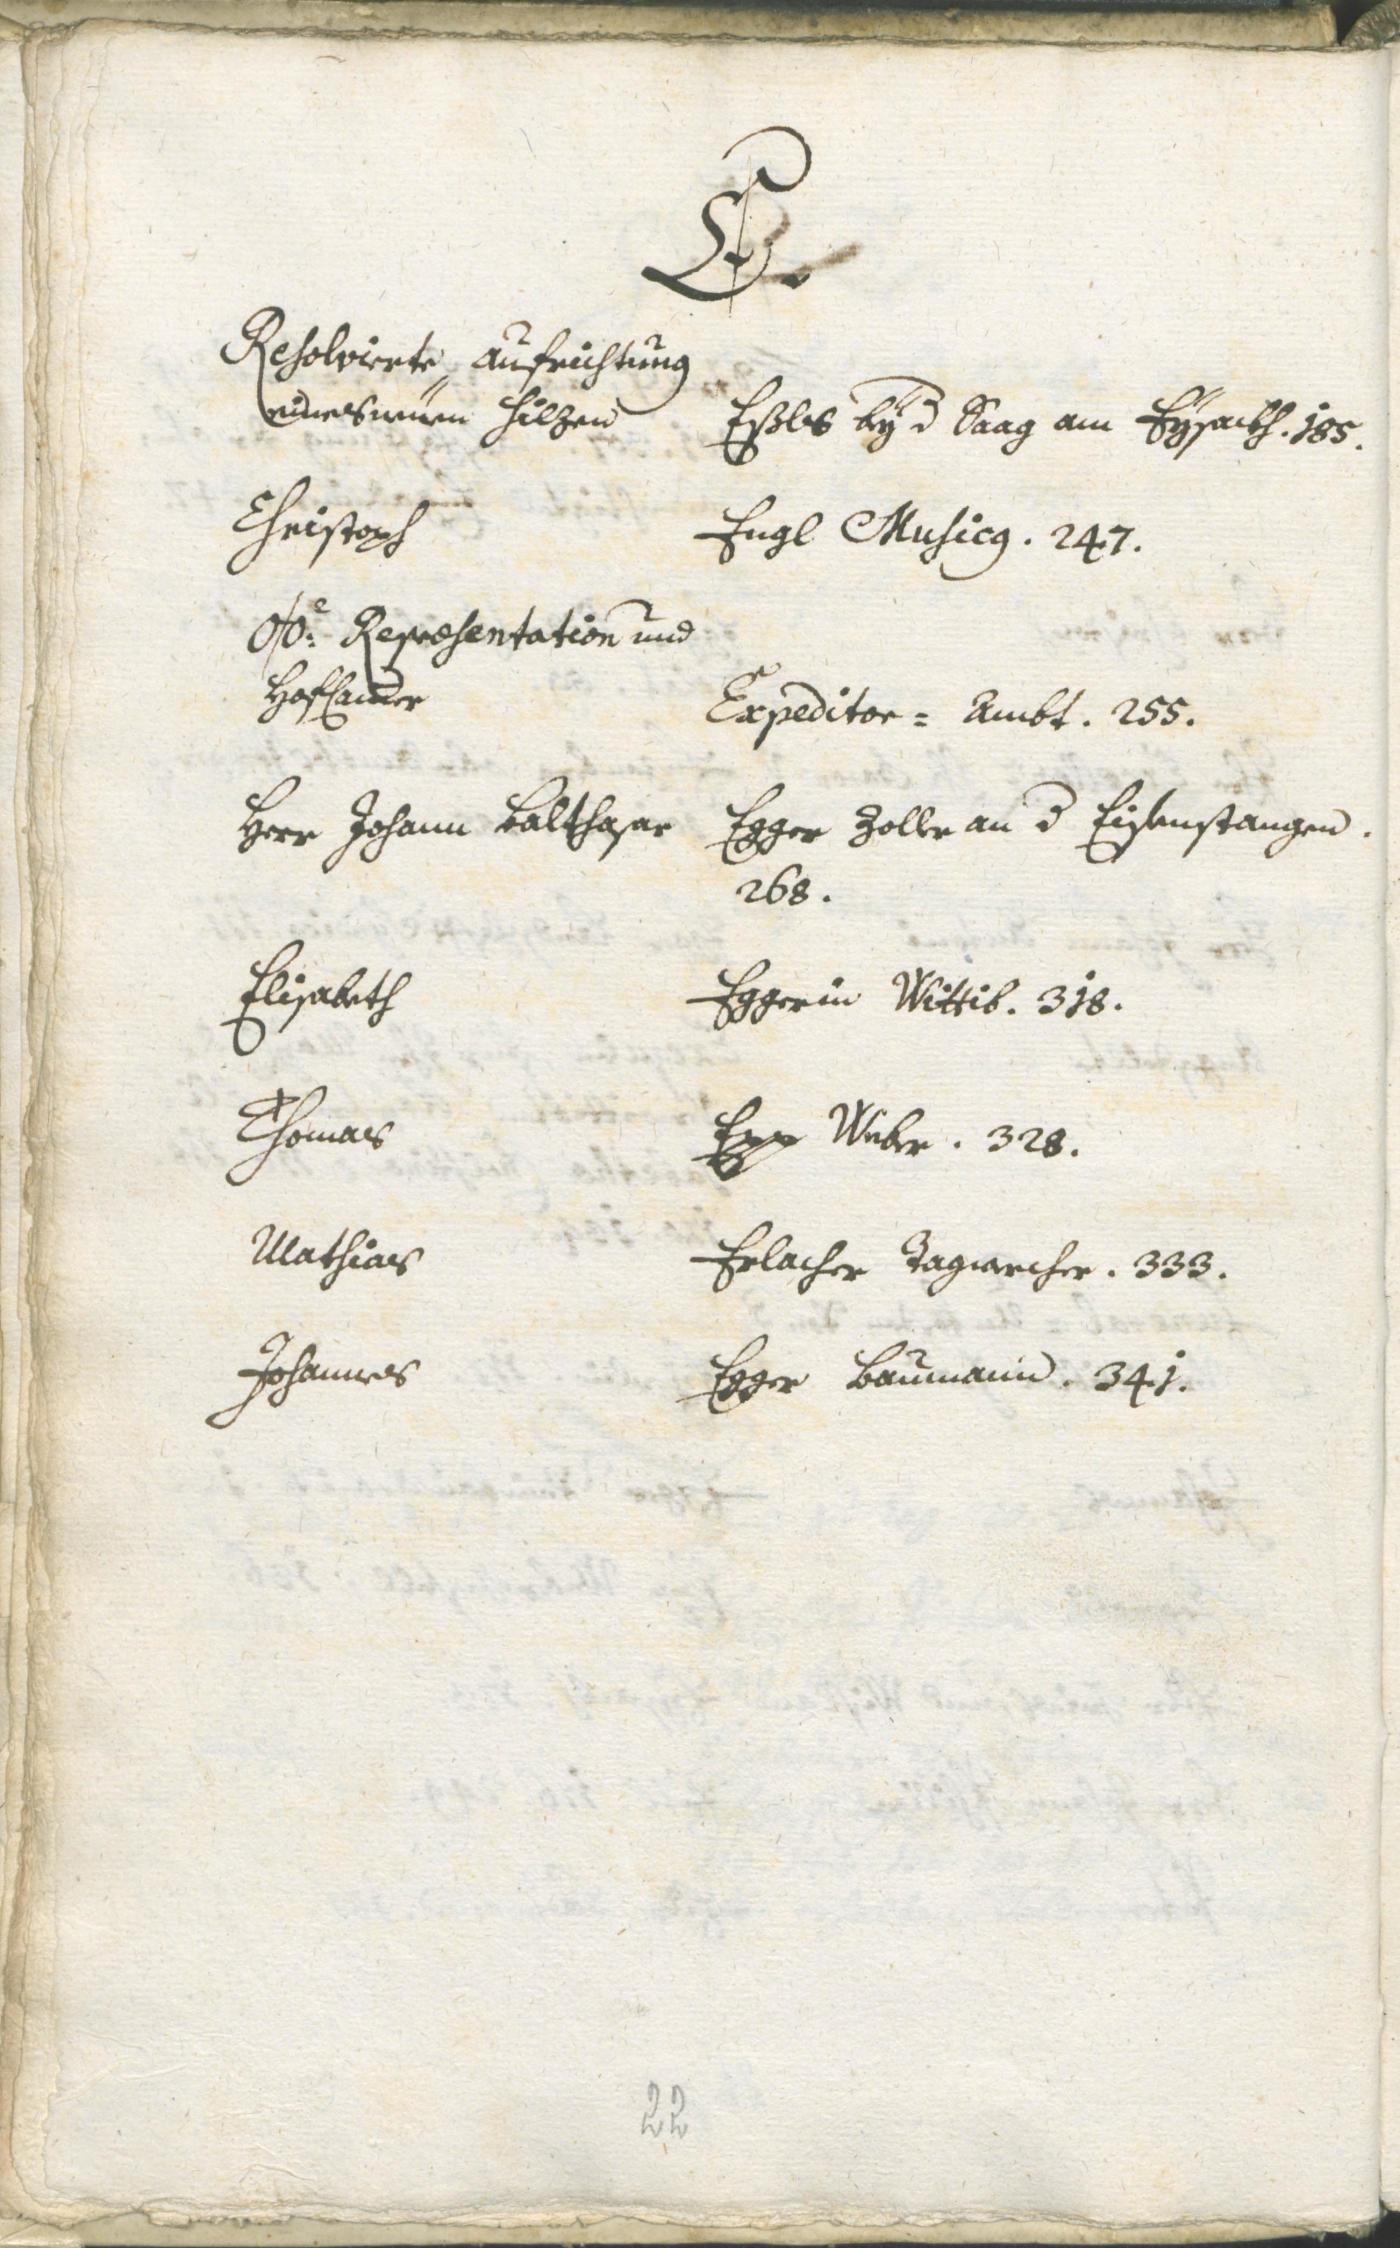 E.
Resolvierte Aufrichtung
eines neuen hilzen Eßles bey d Saag am Eysackh. 185.
Christoph Engl Musicq. 247.
OÖe: Repræsentation und
Hof Camer Expeditor= Ambt. 255.
Herr Johann Balthasar Egger Zoller an d Eisenstangen.
268.
Elisabeth Eggerin Wittib. 318.
Thomas Epp Weber. 328.
Mathias Erlacher Tagwercher. 333.
Johannes Egger Baumann. 341.
22